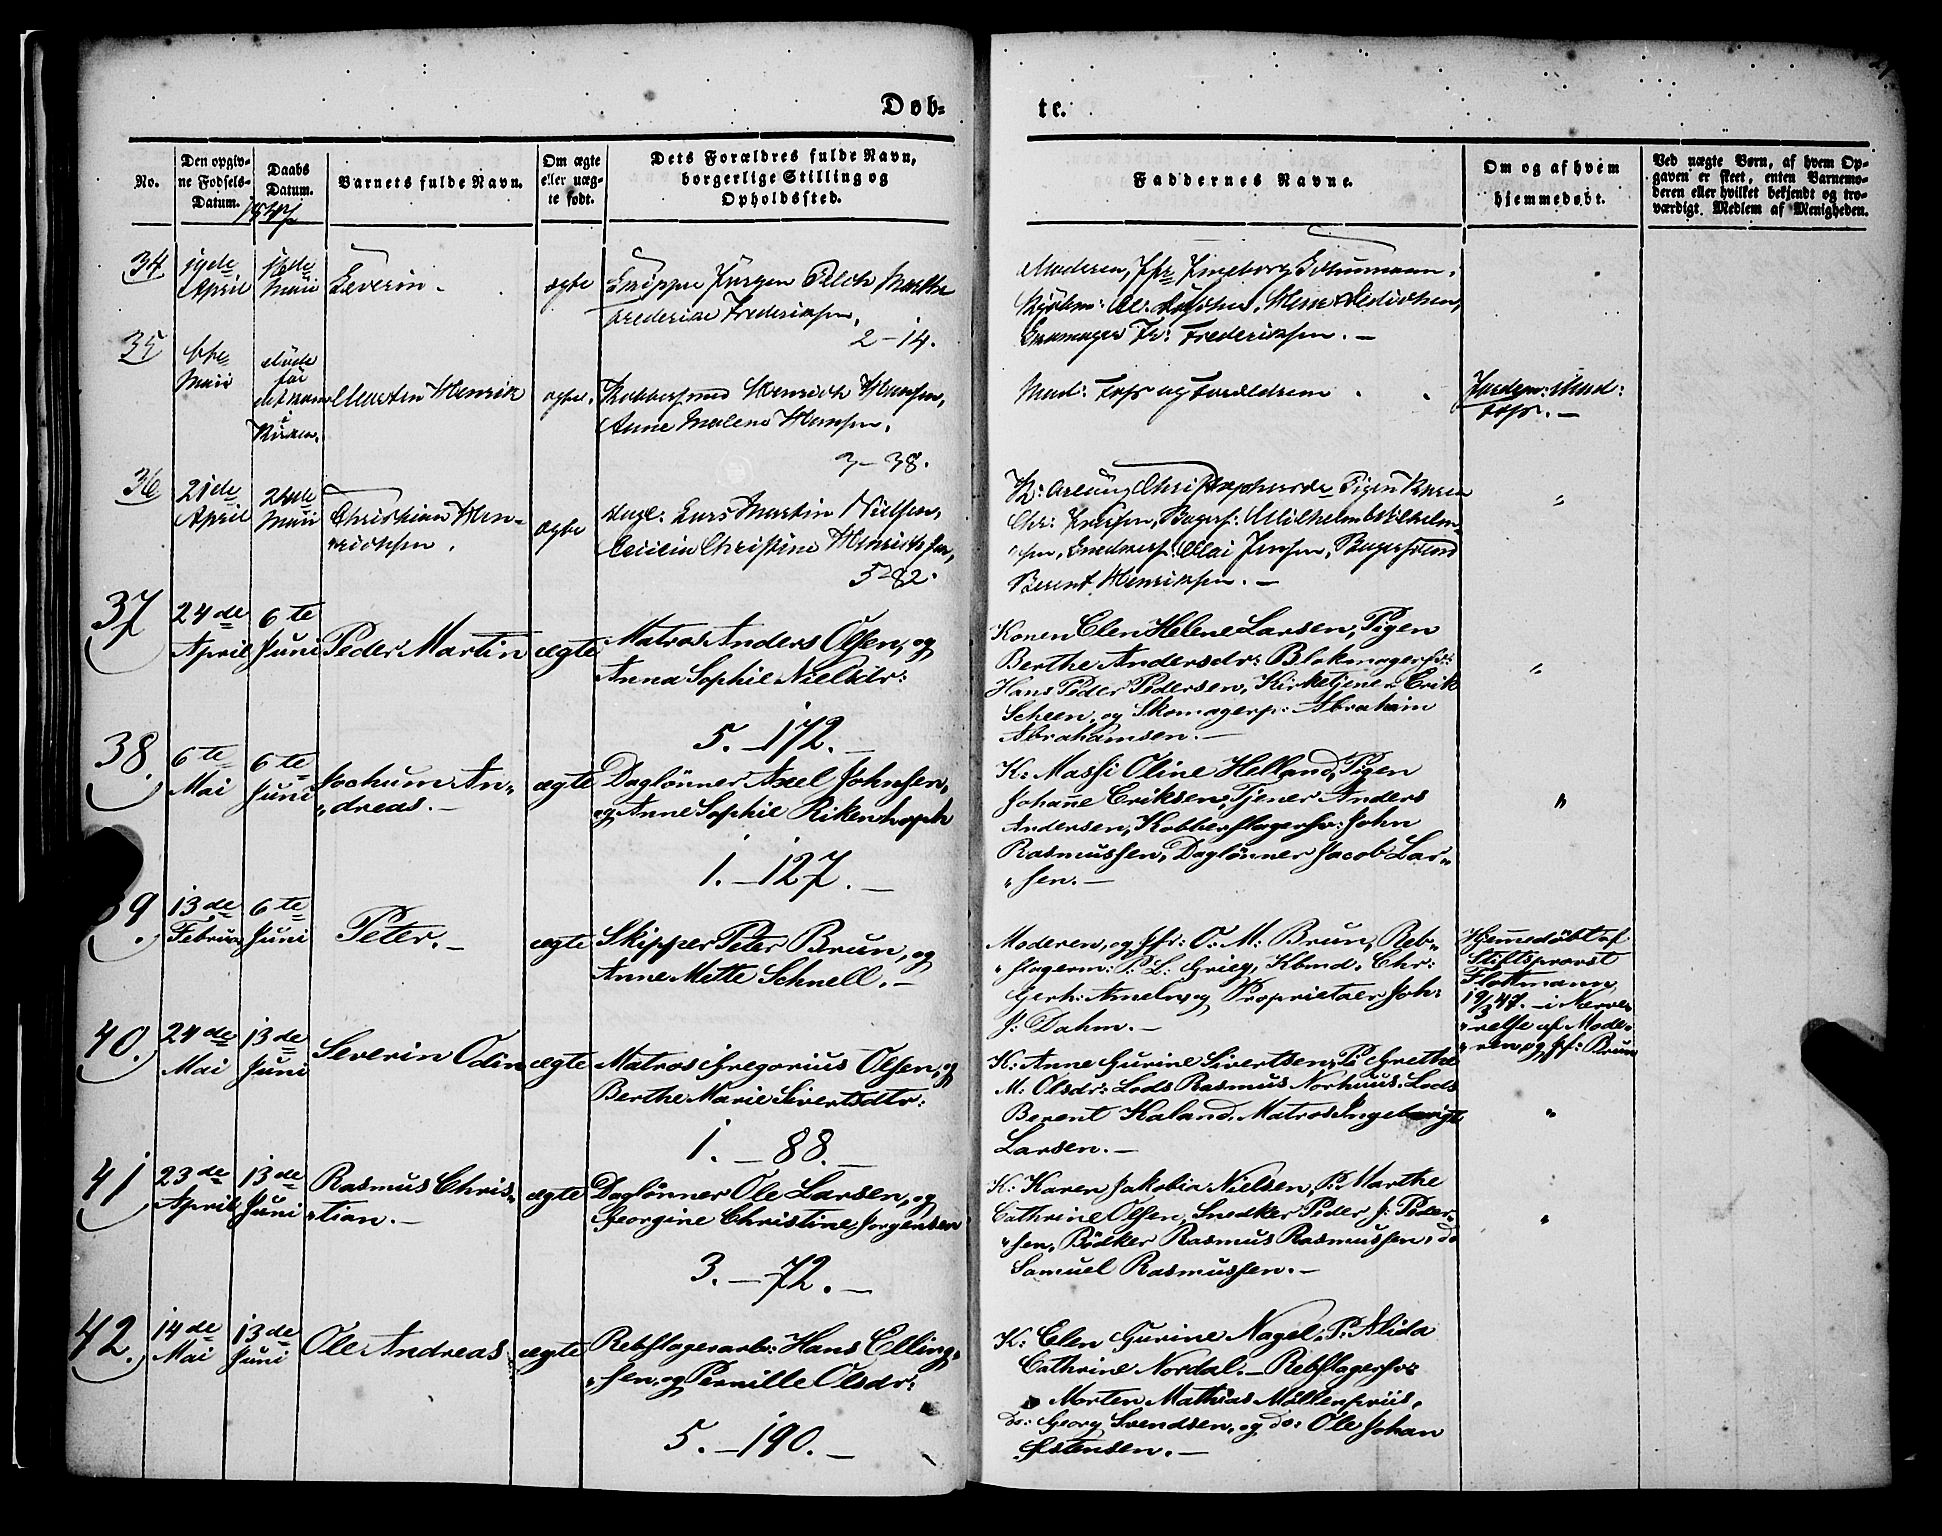 Døb-
te.
No.
Den opgiv-
ne Fødsels-
Datum.
Daabs
Datum.
1847
Barnets fulde Navn.
Om ægte
eller uæg-
te født.
Dets Forældres fulde Navn,
borgerlige Stilling og
Opholdssted.
Faddernes Navne.
Om og af hvem
hjemmedøbt.
Ved uægte Børn, af hvem Op-
gaven er skeet, enten Barnemo-
deren eller hvilket bekjendt og tro-
værdigt Medlem af Menigheden.
34
19de
April
16de
Mai
Severin.
ægte
Skipper Jürgen Martha
Frederikke Frederiksen,
2-14.
Moderen, Jfr Ingeborg
Frederiksen. -
35
6te
Mai
døde
før
det kom
i
Kirken.
Morten Henrik
ægte.
Kobbersmed Henrich Hansen,
Anne Malene Hansen.
3-38.
Mad: Foss og Forældrene
Jordem: Mad:
Foss. -
36
21de
April
24de
Mai
Christian Hen-
richsen.
ægte
Lars Martin Nielsen,
Cecilia Christine Henrichsen,
5-82.
K: Christophersdr Pigen Karen
Chr: Bagers: Wilhelm Wilhelm-
sen, Snedkers: Olai Jensen, Bagersvend
Berent Henriksen. -
37
24de
April
6te
Juni
Peder Martin
ægte
Matros Anders Olsen, og
Anna Sophie Nielsdr:
5.-172.-
Konen Elen Helene Larsen, Pigen
Berthe Andersdr: Blokmagersv:
Hans Peder Pedersen, Kirketjener Erik
Scheen, og Skomagersv: Abraham
Abrahamsen. -
38.
6te
Mai
6te
Juni
Jochum An-
dreas. -
ægte
Daglønner Axel Johnsen,
og Anne Sophie Rikenhoph
1.-127.-
K: Massi Oline Helland, Pigen
Johanne Eriksen, Tjener Anders
Andersen, Kobberslagersv: John
Rasmussen, Daglønner Jacob Lar-
sen. -
39.
13de
Februar
6te
Juni
Peter. -
ægte
Skipper Peter Brun, og
Anne Mette Schnell. -
Moderen, og Jfr: O: M: Brun, Reb-
slagerm: P: L: Grieg, Kbmd. Chr:
Gerh: Ameln, og Proprietær Joh:
J: Dahm. -
Hjemmedøbt af
Stiftsprovst
Flottmann,
19/3 47. - i Nærvæ-
relse af Mode-
ren, og Jf: Brun
40.
24de
Mai
13de
Juni
Severin Odin
ægte
Matros Gregorius Olsen, og
Berthe Marie Sivertsdtr:
1.-88.-
K: Anne Gurine Sivertsen, P: Grethe
M: Olsdr: Lods Rasmus Norhuus, Lods
Berent Kaland, Matros Ingebrigt
Larsen. -
41
23de
April
13de
Juni
Rasmus Chris-
tian. -
ægte
Daglønner Ole Larsen, og
Georgine Christine Jørgensen
3.-72.-
K: Karen Jakobia Nielsen, P: Marthe
Cathrine Olsen, Snedker Peder J: Peder-
sen, Bødker Rasmus Rasmussen, do
Samuel Rasmussen. -
42.
14de
Mai
13de
Juni
Ole Andreas
ægte
Rebslagerarb: Hans Elling-
sen, og Pernille Olsdr:
5.-190.-
K: Elen Gurine Nagel, P: Alida
Cathrine Nordal. - Rebslagersv:
Morten Mathias Møllenpriis,
do: Georg Svendsen, og do: Ole Johan
Østensen. -